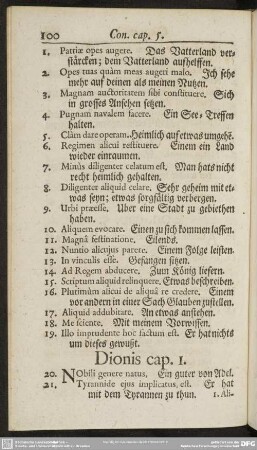 100 Con. cap. 5.
1. Patriæ opes augere. Das Vatterland ver-
stärcken; dem Vatterland aufhelffen.
2. Opes tuas quàm meas augeri malo. Ich sehe
mehr auf deinen als meinen Nutzen.
3. Magnam auctoritatem sibi constituere. Sich
in grosses Ansehen setzen.
4. Pugnam navalem facere. Ein See-Treffen
halten.
5. Clàm dare operam. Heimlich auf etwas umgehẽ.
6. Regimen alicui restituere. Einem ein Land
wieder einraumen.
7. Minùs diligenter celatum est. Man hats nicht
recht heimlich gehalten.
8. Diligenter aliquid celare. Sehr geheim mit et-
was seyn; etwas sorgfältig verbergen.
9. Urbi præesse. Uber eine Stadt zu gebiethen
haben.
10. Aliquem evocare. Einen zu sich kommen lassen.
11. Magnâ festinatione. Eilends.
12. Nuntio alicujus parere. Einem Folge leisten.
13. In vinculis esse. Gefangen sitzen.
14. Ad Regem abducere. Zum König liefern.
15. Scriptum aliquid relinquere. Etwas beschreiben.
16. Plurimùm alicui de aliquâ re credere. Einem
vor andern in einer Sach Glauben zustellen.
17. Aliquid addubitare. An etwas anstehen.
18. Me sciente. Mit meinem Vorwissen.
19. Illo imprudente hoc factum est. Er hat nichts
um dieses gewußt.
Dionis cap. 1.
20. Nobili genere natus. Ein guter von Adel.
21. Tyrannide ejus implicatus, est. Er hat
mit dem Tyrannen zu thun. 1. Ali-